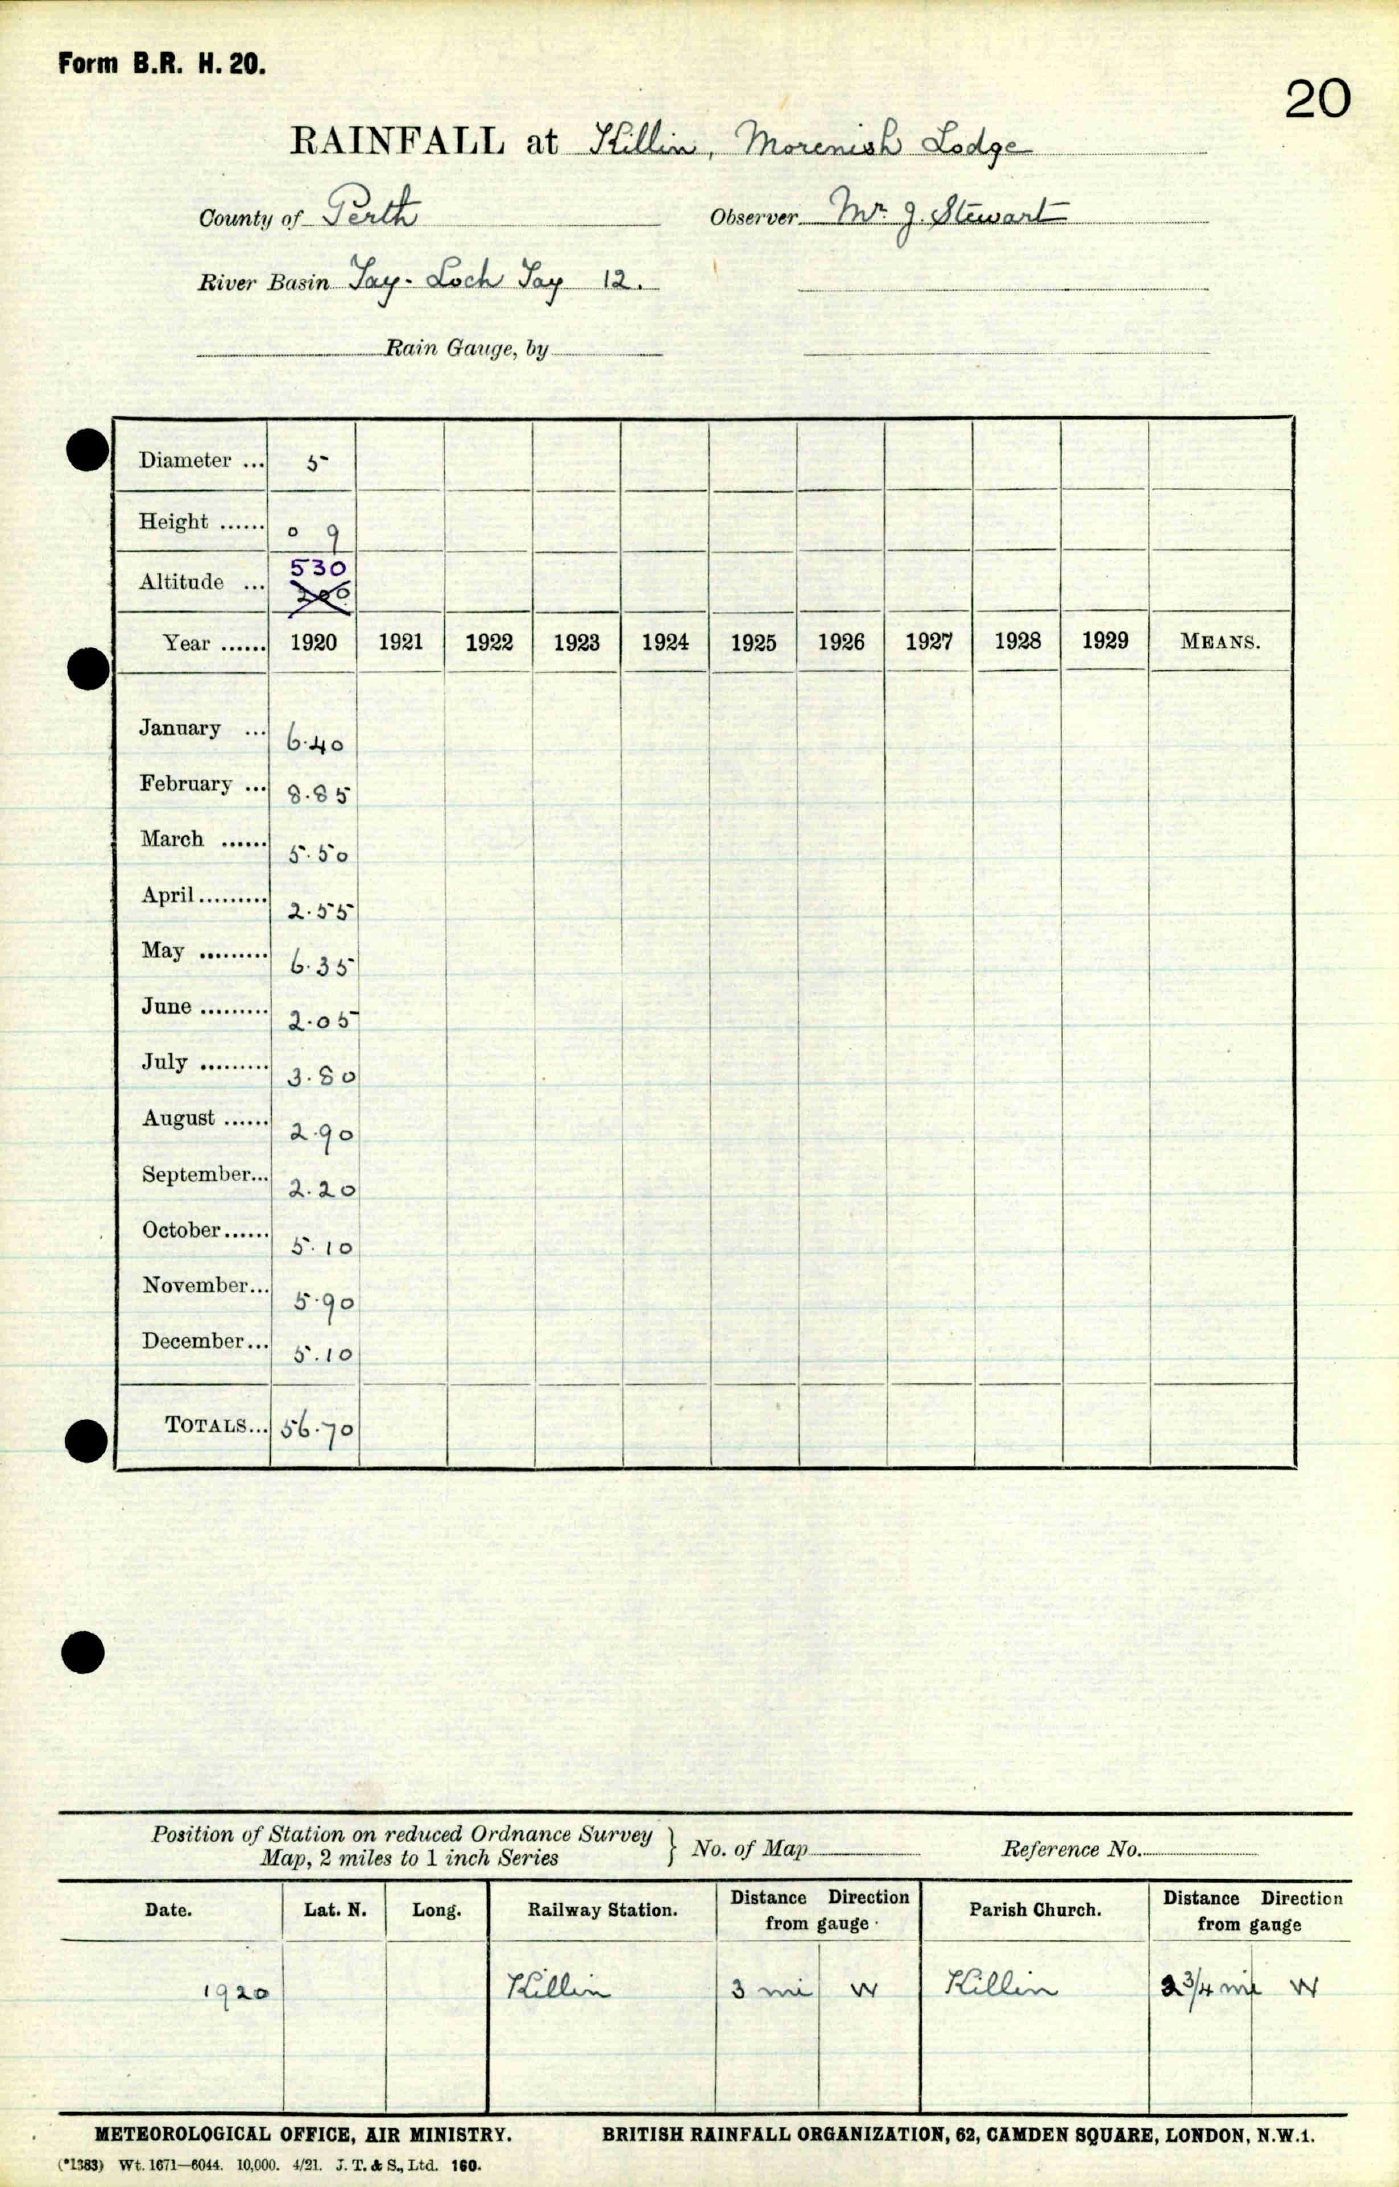 Form B.R. H. 20.
20
RAINFALL at Killin, Morenish Lodge
County of Perth Observer Mr. J. Stewart
River Basin Tay - Loch Tay 12.
Rain Gauge, by
Diameter ... 5
Height ...... 0 9
530
Altitude ... 200
Year ...... 1920 1921 1922 1923 1924 1925 1926 1927 1928 1929 MEANS.
January ... 6.40
February ... 8.85
March ...... 5.50
April ......... 2.55
May ......... 6.35
June ......... 2.05
July ......... 3.80
August ...... 2.90
September... 2.20
October...... 5.10
November... 5.90
December... 5.10
TOTALS... 56.70
Position of Station on reduced Ordnance Survey
Map, 2 miles to 1 inch Series } No. of Map Reference No.
Date. Lat. N. Long. Railway Station. Distance Direction from gauge Parish Church. Distance Direction from gauge
1920 Killin 3 mi W Killin 2 3/4 mi W
METEOROLOGICAL OFFICE, AIR MINISTRY. BRITISH RAINFALL ORGANIZATION, 62, CAMDEN SQUARE, LONDON, N.W.1.
(*1383) Wt. 1671—6044. 10,000. 4/21. J. T. & S., Ltd. 160.